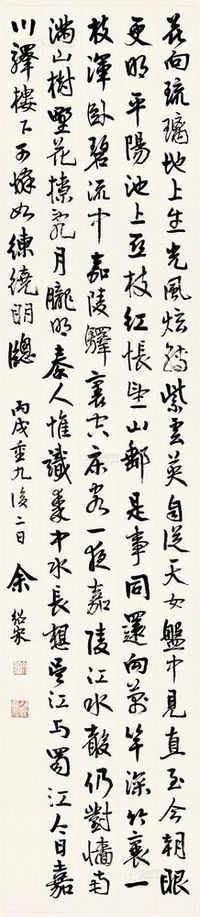 花向琉璃地上生光風炫轉紫雲英自從天女盤中見直至今朝眼
更明平陽池上亞枝紅悵望山郵是事同還向萬竿深竹裏一
枝渾臥碧流中嘉陵驛裏空床客一夜嘉陵江水聲仍對牆南
滿山樹野花撩亂月朧明秦人惟識秦中水長想吳江与蜀江今日嘉
川驛樓下可憐如練繞明牕
丙戌重九後二日
余紹宋